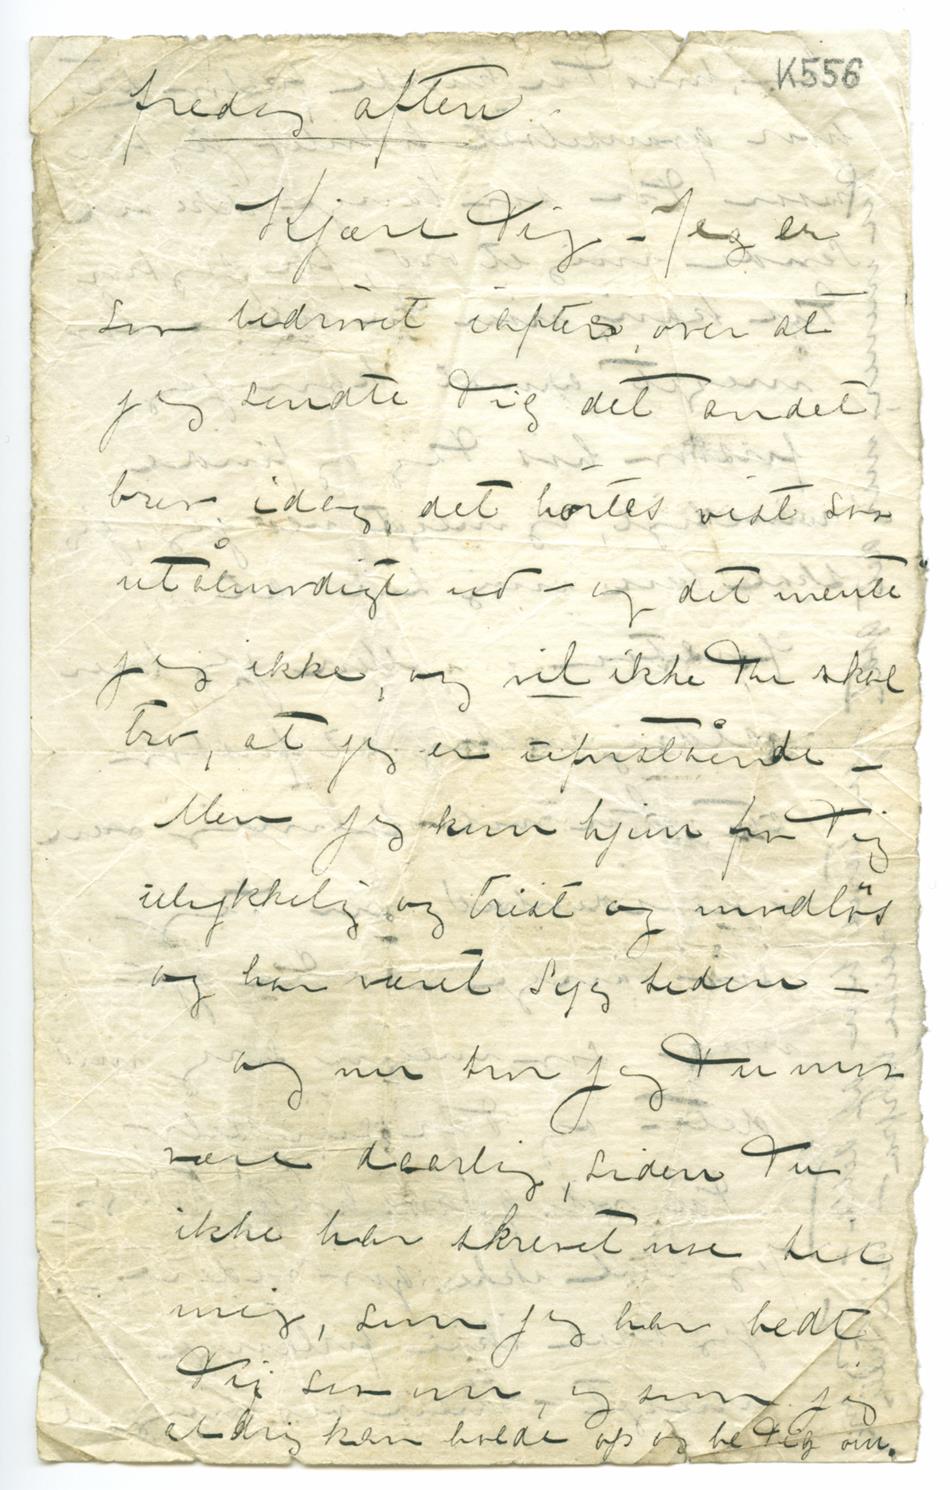 K556
fredag aften.
Kjære Dig – Jeg er
saa bedrøvet iaften, over at
jeg sendte Dig det andet
brev idag, det hørtes vist saa
utålmodigt ud – og det mente
jeg ikke, og vil ikke Du skal
tro, at jeg er
Men jeg kom hjem fra Dig
ulykkelig og trist og modløs
og har været syg siden –
og nu tror jeg Du maa
være daarlig, siden Du
ikke har skrevet noe til
mig, som jeg har bedt
Dig saa om, og som jeg
aldrig kan holde op og be Dig om.